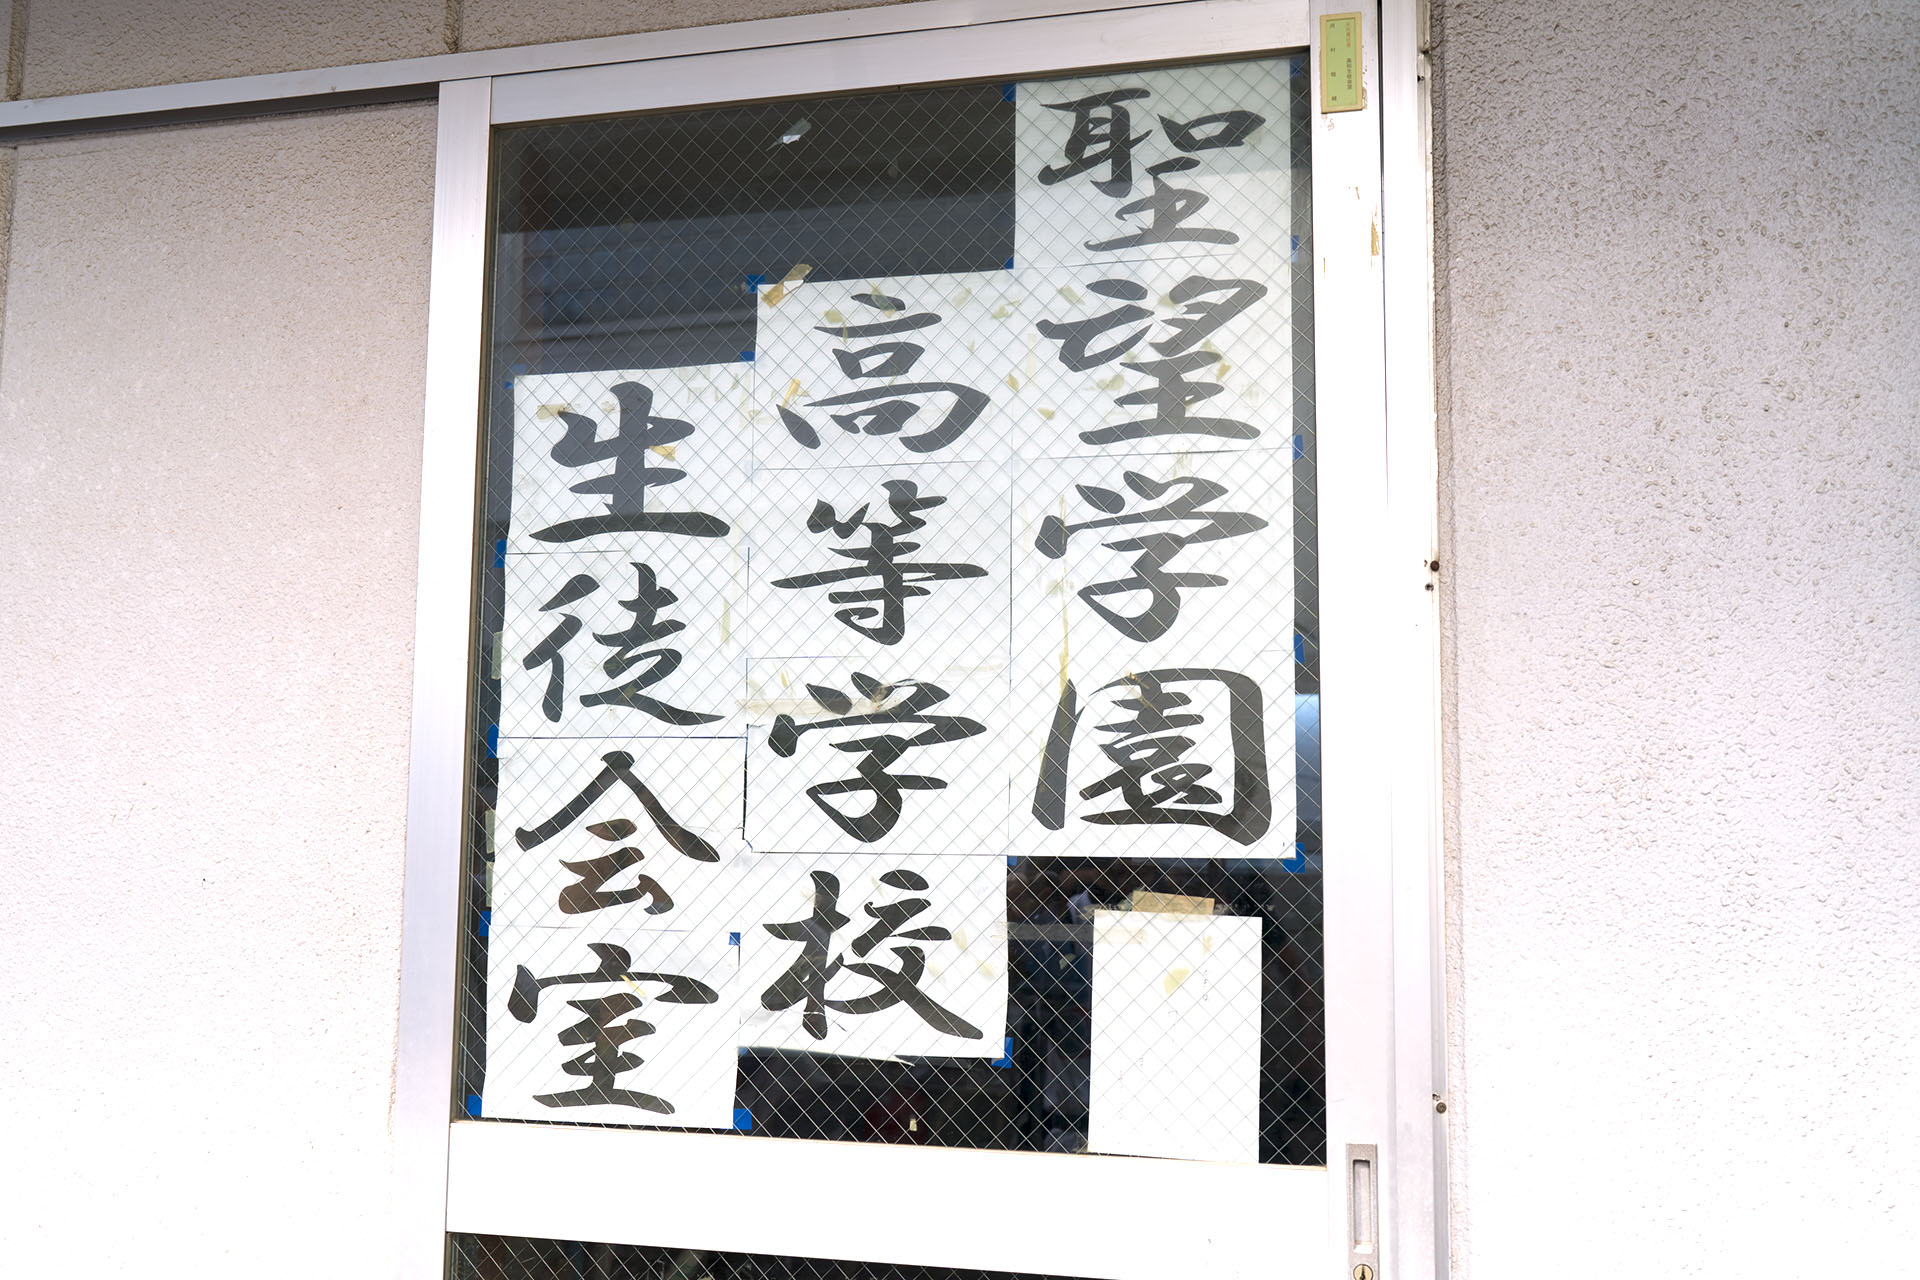 聖望学園
高等学校
生徒会室